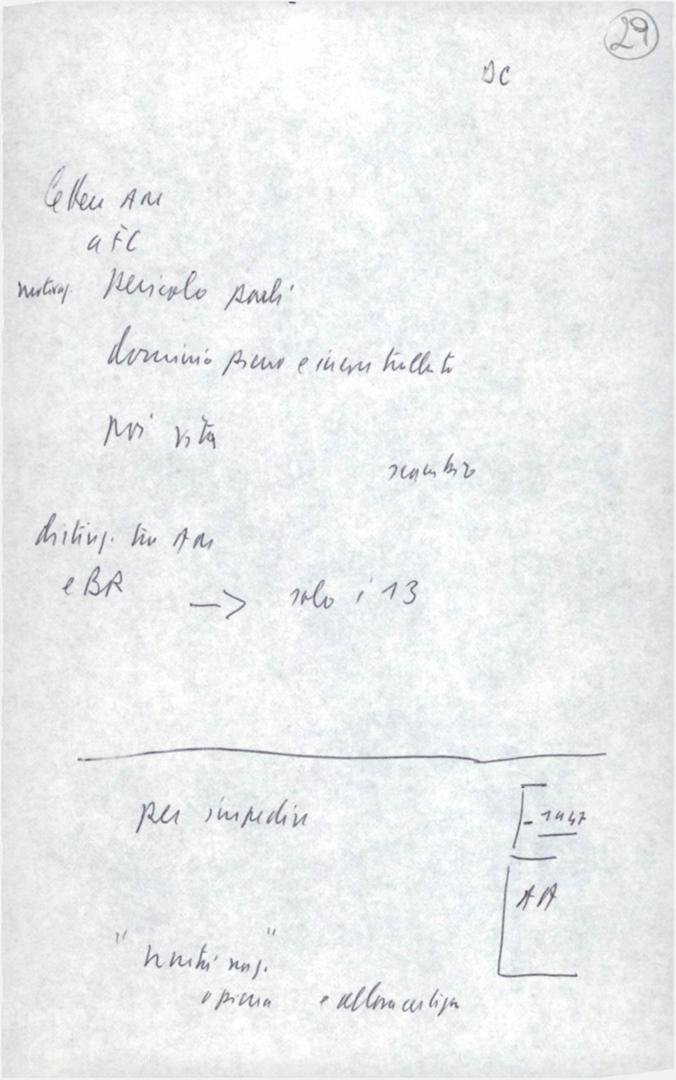 29
DC
lettera AM
a FC
motivaz. pericolo parli
dominio pieno e incontrollato
poi vita
scambio
disting. tra AM
e BR
→ solo i 13
per impedire
- 1947
AA
" "
o piena e allora